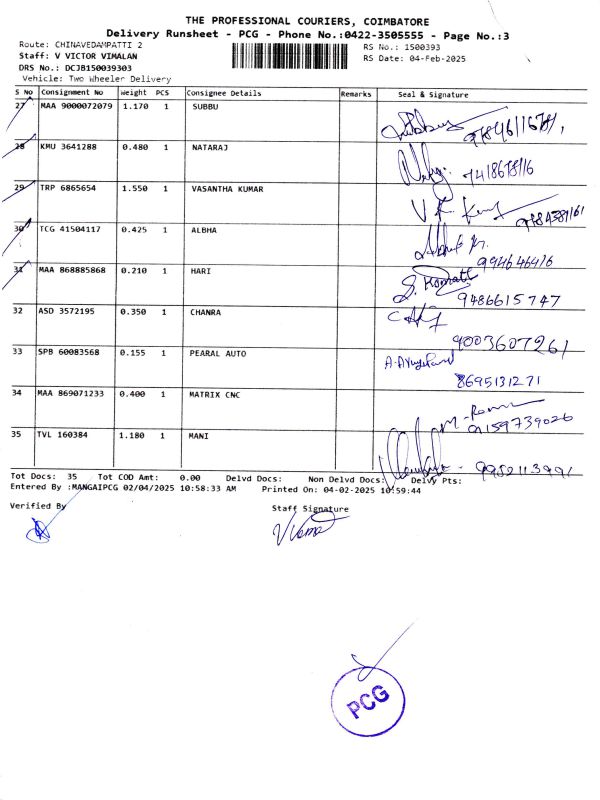 THE PROFESSIONAL COURIERS, COIMBATORE
Delivery Runsheet - PCG - Phone No.:0422-3505555 - Page No.:3
Route: CHINAVEDAMPATTI 2
RS No.: 1500393
Staff: V VICTOR VIMALAN
RS Date: 04-Feb-2025
DRS No.: DCJB150039303
Vehicle: Two Wheeler Delivery
S No Consignment No Weight PCS Consignee Details Remarks Seal & Signature
27 MAA 9000072079 1.170 1 SUBBU
28 KMU 3641288 0.480 1 NATARAJ
7418678116
29 TRP 6865654 1.550 1 VASANTHA KUMAR
30 TCG 41504117 0.425 1 ALBHA
31 MAA 868885868 0.210 1 HARI
9486615747
32 ASD 3572195 0.350 1 CHANRA
9003607261
33 SPB 60083568 0.155 1 PEARAL AUTO
8695131271
34 MAA 869071233 0.400 1 MATRIX CNC
9159739026
35 TVL 160384 1.180 1 MANI
9952113991
Tot Docs: 35 Tot COD Amt: 0.00 Delvd Docs: Non Delvd Docs: Delvy Pts:
Entered By :MANGAIPCG 02/04/2025 10:58:33 AM Printed On: 04-02-2025 10:59:44
Verified By Staff Signature
PCG